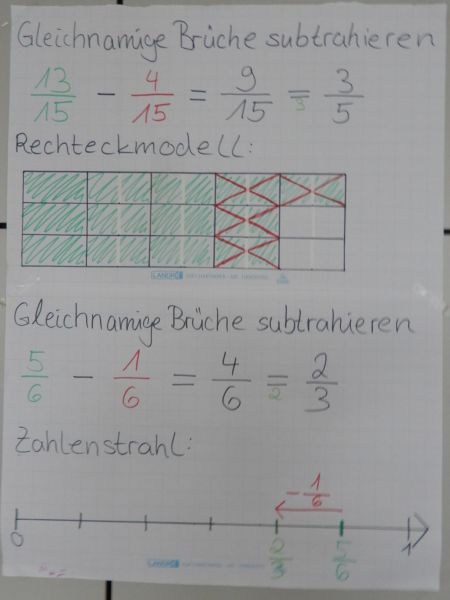 Gleichnamige Brüche subtrahieren
13/15 - 4/15 = 9/15 =3 3/5
Rechteckmodell:
LANDRÉ
Gleichnamige Brüche subtrahieren
5/6 - 1/6 = 4/6 =2 2/3
Zahlenstrahl:
- 1/6
0 2/3 5/6 1
LANDRÉ